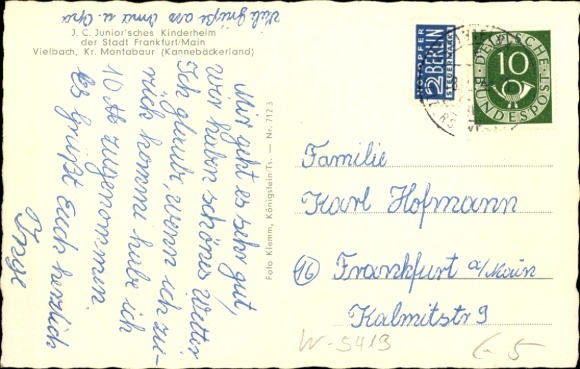 Viele Grüße an Oma u. Opa
J. C. Junior'sches Kinderheim
der Stadt Frankfurt/Main
Vielbach, Kr. Montabaur (Kannebäckerland)
Mir geht es sehr gut,
wir haben schönes Wetter
Ich glaube, wenn ich zu-
rück komme habe ich
10 ℔ zugenommen.
Es Grüßt Euch herzlich
Inge
Foto Klemm, Königstein/Ts. — Nr. 7123
NOTOPFER
2 BERLIN
STEUERMARKE
DEUTSCHE
10
BUNDESPOST
Familie
Karl Hofmann
(16) Frankfurt a/Main
Kalmitstr 9
W-5413